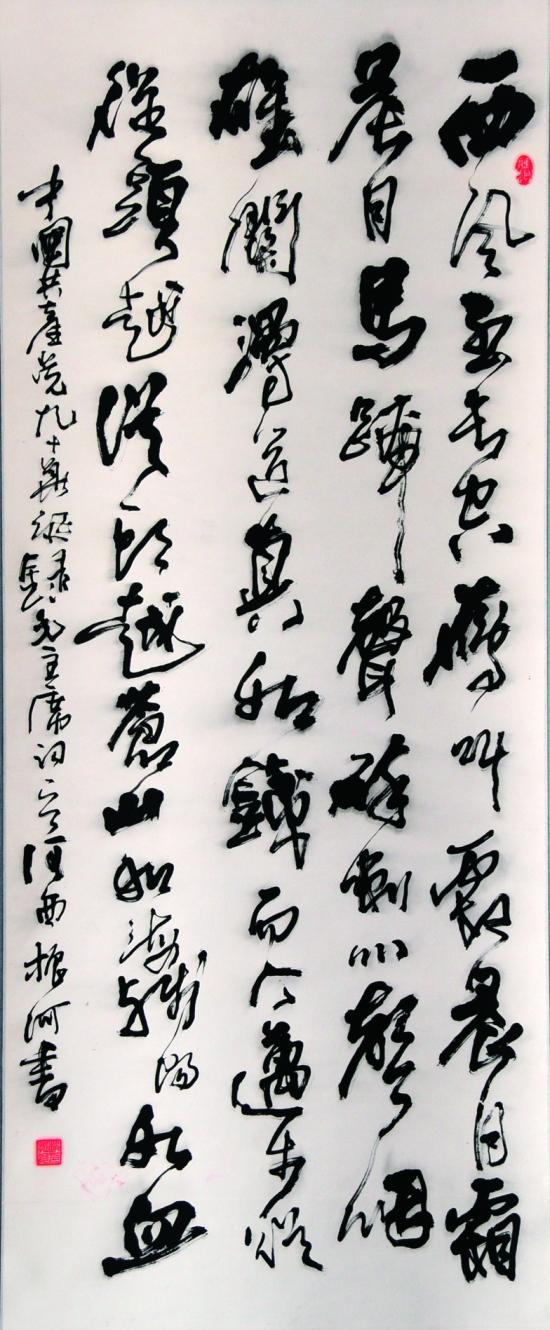 西风烈長空雁叫霜晨月霜
晨月馬蹄聲碎喇叭聲咽
雄關漫道真如鐵而今邁步從
從頭越從頭越蒼山如海殘陽如血
中國共產党九十華誕錄毛主席詞西根河書